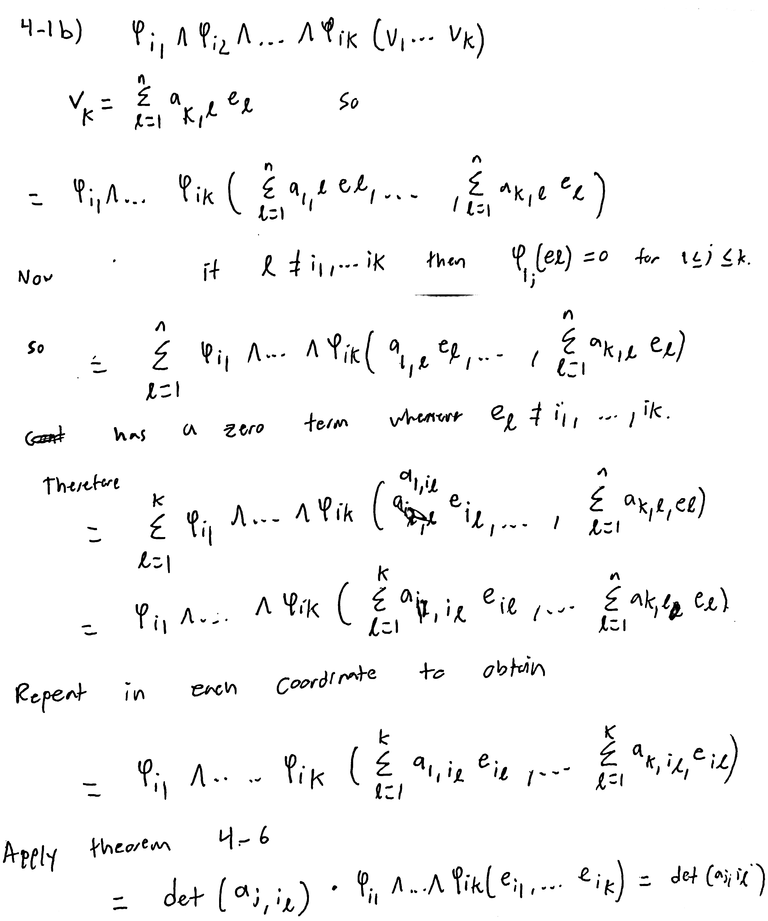 4-1b) φ_{i_1} ∧ φ_{i_2} ∧ ... ∧ φ_{ik} (v_1 ... v_k)
v_k = Σ_{l=1}^{n} a_{k,l} e_l so
= φ_{i_1} ∧ ... φ_{ik} ( Σ_{l=1}^{n} a_{1,l} e_l, ... , Σ_{l=1}^{n} a_{k,l} e_l )
Now if l ≠ i_1, ... ik then φ_{i_j}(e_l) = 0 for 1 ≤ j ≤ k.
so = Σ_{l=1}^{n} φ_{i_1} ∧ ... ∧ φ_{ik} ( a_{1,l} e_l, ... , Σ_{l=1}^{n} a_{k,l} e_l )
has a zero term whenever e_l ≠ i_1, ... , ik.
Therefore
= Σ_{l=1}^{k} φ_{i_1} ∧ ... ∧ φ_{ik} ( a_{1,il} e_{il}, ... , Σ_{l=1}^{n} a_{k,l}, e_l )
= φ_{i_1} ∧ ... ∧ φ_{ik} ( Σ_{l=1}^{k} a_{1,il} e_{il}, ... Σ_{l=1}^{n} a_{k,l} e_l )
Repeat in each coordinate to obtain
= φ_{i_1} ∧ ... φ_{ik} ( Σ_{l=1}^{k} a_{1,il} e_{il}, ... Σ_{l=1}^{k} a_{k,il}, e_{il} )
Apply theorem 4-6
= det (a_{j,il}) · φ_{i_1} ∧ ... ∧ φ_{ik} (e_{i_1}, ... e_{ik}) = det (a_{j,il})